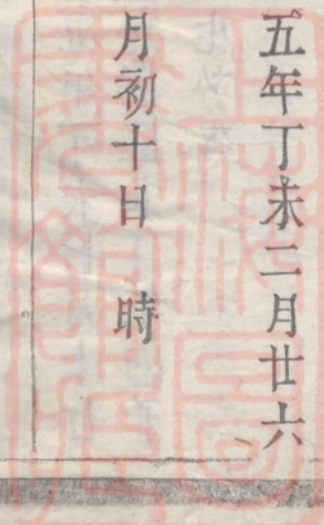 五年丁未二月廿六
月初十日　時